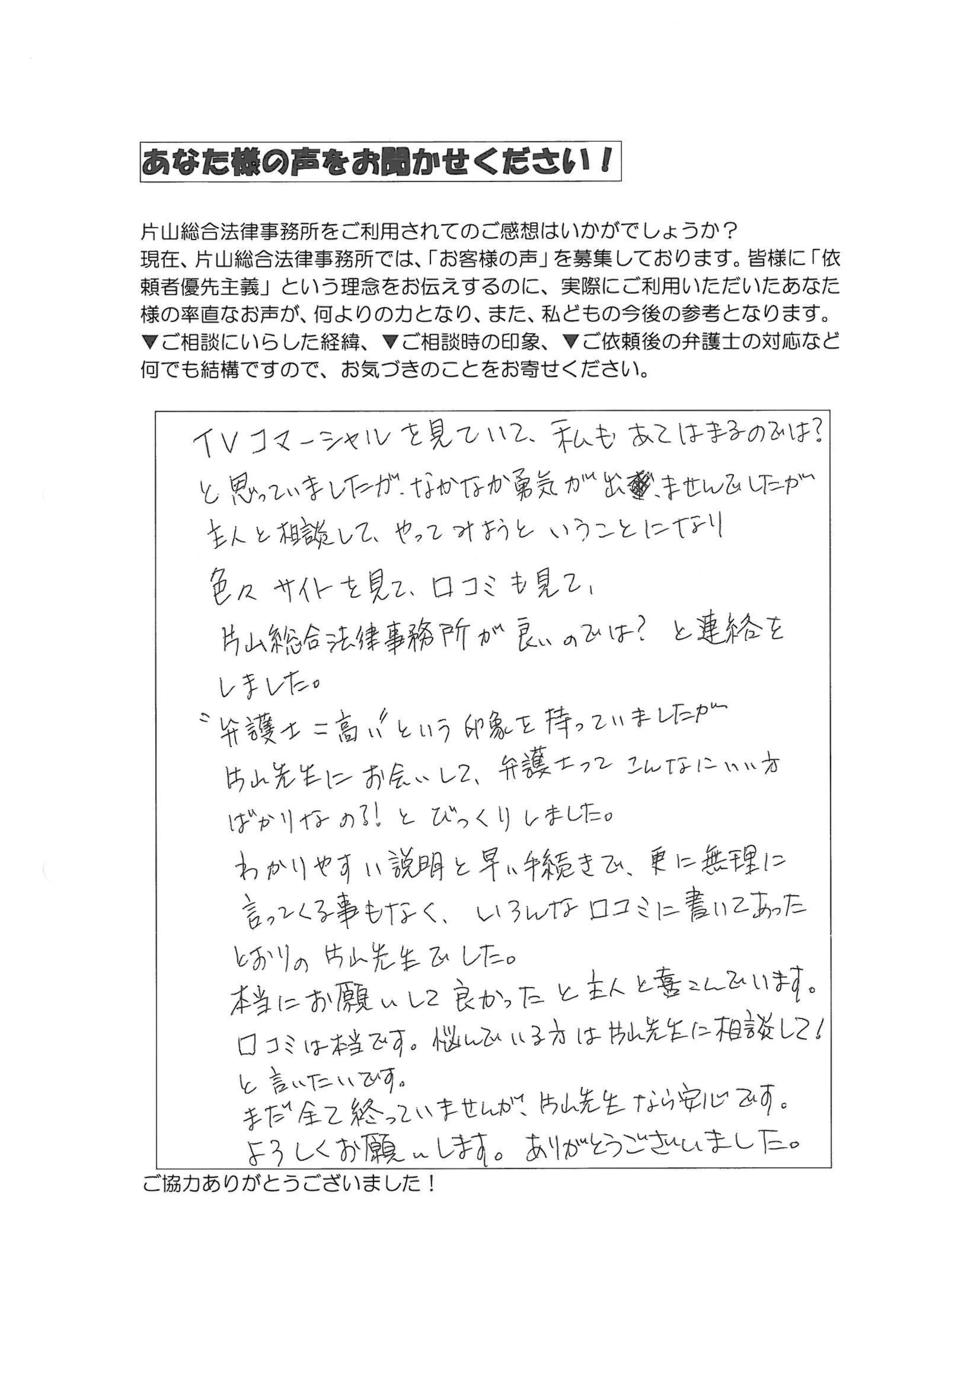 あなた様の声をお聞かせください！
片山総合法律事務所をご利用されてのご感想はいかがでしょうか？
現在、片山総合法律事務所では、「お客様の声」を募集しております。皆様に「依
頼者優先主義」という理念をお伝えするのに、実際にご利用いただいたあなた
様の率直なお声が、何よりの力となり、また、私どもの今後の参考となります。
▼ご相談にいらした経緯、▼ご相談時の印象、▼ご依頼後の弁護士の対応など
何でも結構ですので、お気づきのことをお寄せください。
TVコマーシャルを見ていて、私もあてはまるのでは？
と思っていましたが、なかなか勇気が出ませんでしたが
主人と相談して、やってみようということになり
色々サイトを見て、口コミも見て、
片山総合法律事務所が良いのでは？と連絡を
しました。
“弁護士＝高い”という印象を持っていましたが
片山先生にお会いして、弁護士ってこんなにいい方
ばかりなの？！とびっくりしました。
わかりやすい説明と早い手続きで、更に無理に
言ってくる事もなく、いろんな口コミに書いてあった
とおりの片山先生でした。
本当にお願いして良かったと主人と喜こんでいます。
口コミは本当です。悩んでいる方は片山先生に相談して！
と言いたいです。
まだ全て終っていませんが、片山先生なら安心です。
よろしくお願いします。ありがとうございました。
ご協力ありがとうございました！